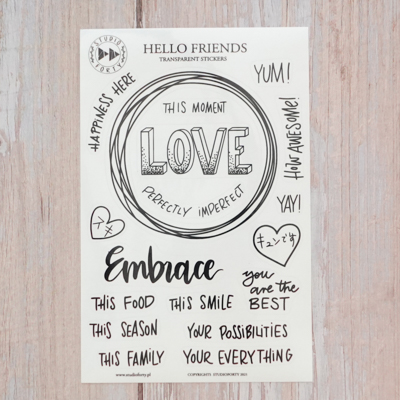 STUDIO
FORTY
HELLO FRIENDS
TRANSPARENT STICKERS
HAPPINESS HERE
YUM!
THIS MOMENT
LOVE
PERFECTLY IMPERFECT
HOW AWESOME!
YAY!
キュンです
Embrace
you
are the
BEST
THIS FOOD
THIS SMILE
THIS SEASON
YOUR POSSIBILITIES
THIS FAMILY
YOUR EVERYTHING
www.studioforty.pl
COPYRIGHTS STUDIOFORTY 2021